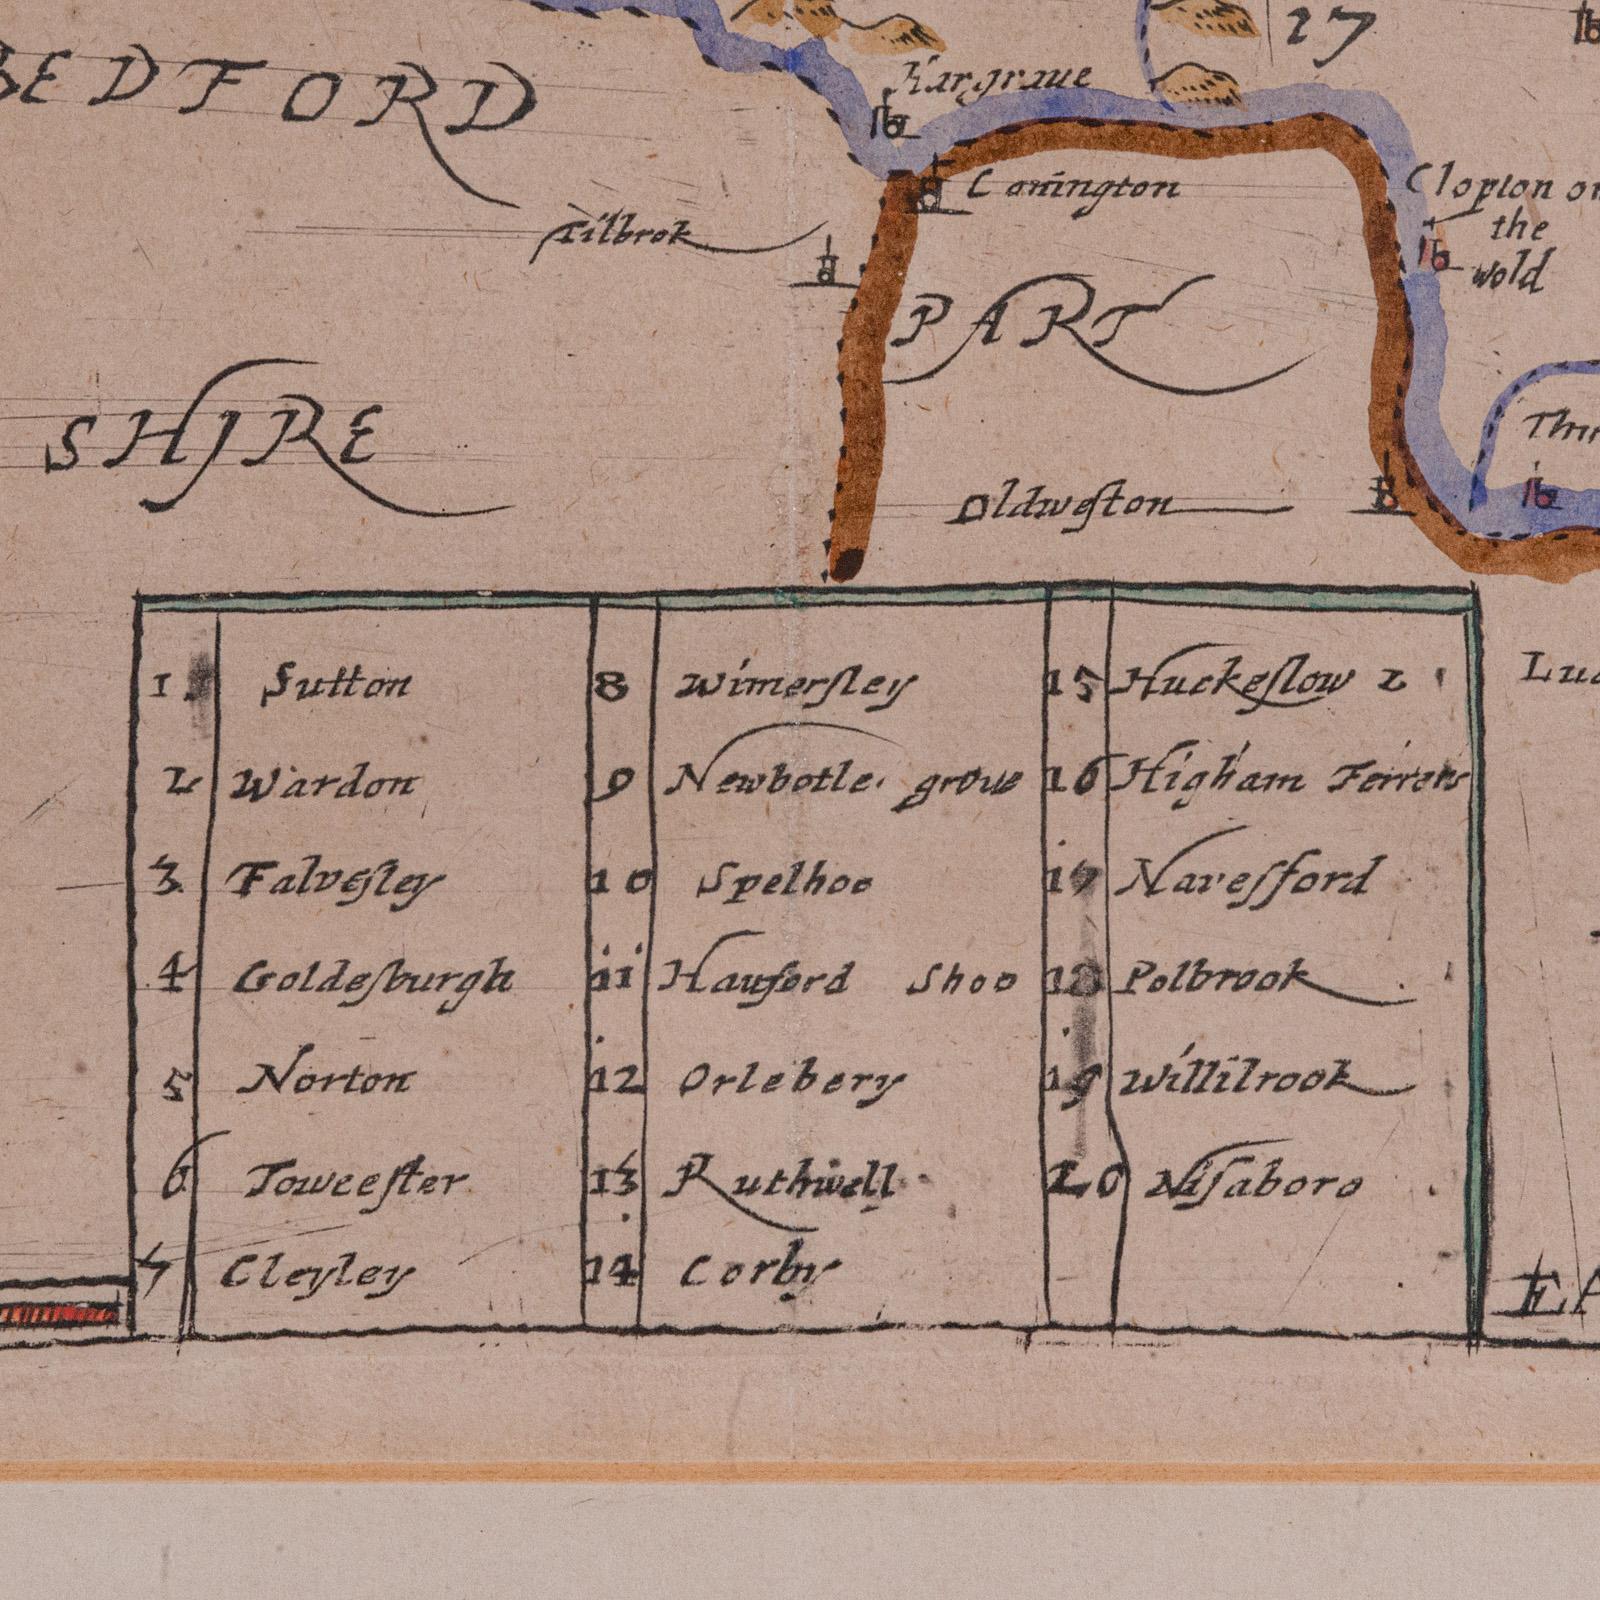 17
BEDFORD
Hargraue
Conington
Clopton on
the
wold
Tilbrok
PART
SHIRE
Thu
Oldweſton
1 Sutton
2 Wardon
3 Falveſley
4 Goldeſburgh
5 Norton
6 Toweeſter
7 Cleyley
8 Wimerſley
9 Newbotle grove
10 Spelhoo
11 Hauford Shoo
12 Orlebery
13 Ruthwell
14 Corby
15 Huckeſlow 2
16 Higham Ferrers
17 Naveſford
18 Polbrook
19 Willilrook
20 Niſaboro
Lud
EA